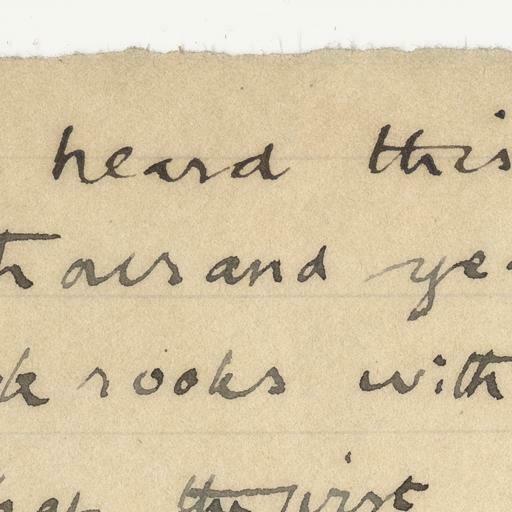 heard this
thousand ye
rooks with
the first